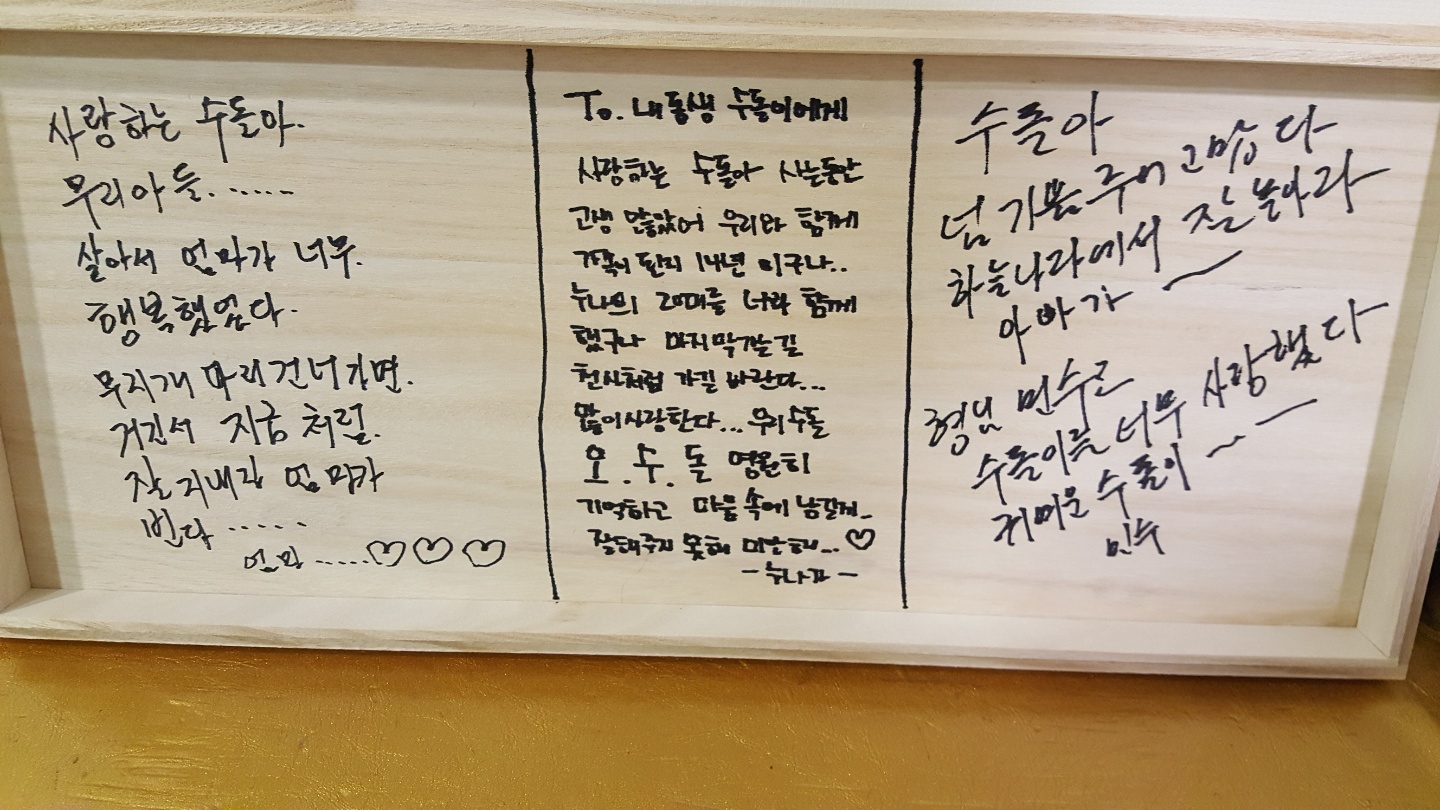 사랑하는 수돌아.
우리아들......
살아서 엄마가 너무.
행복했었다.
무지개 다리건너가면.
거긴서 지금 처럼.
잘 지내람 엄마가
빈다......
엄마.....♡♡♡
To. 내동생 수돌이에게
사랑하는 수돌아 사는동안
고생 많았어 우리와 함께
가족이 된지 14년 이구나..
누나의 20대를 너와 함께
했구나 마지막가는길
천사처럼 가길 바란다...
많이사랑한다...우리수돌
오.수.돌 영원히
기억하고 마음속에 남길게..
잘해주지 못해 미안해...♡
-누나가-
수돌아
넘 기쁨 주어 고맙다
하늘나라에서 잘 놀아라
아빠가 ~
형님 민수고
수돌이를 너무 사랑했다
귀여운 수돌이 ~ ~
민수